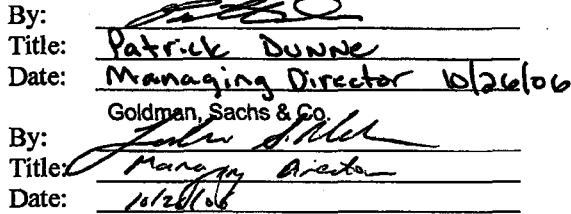 By:
Title: Patrick Dunne
Date: Managing Director 10/26/06
Goldman, Sachs & Co.
By:
Title: Managing Director
Date: